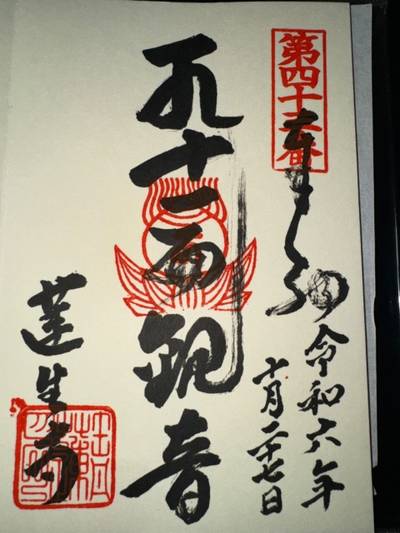 第四十三番
奉拝
令和六年
十月二十七日
十一面観音
蓮生寺